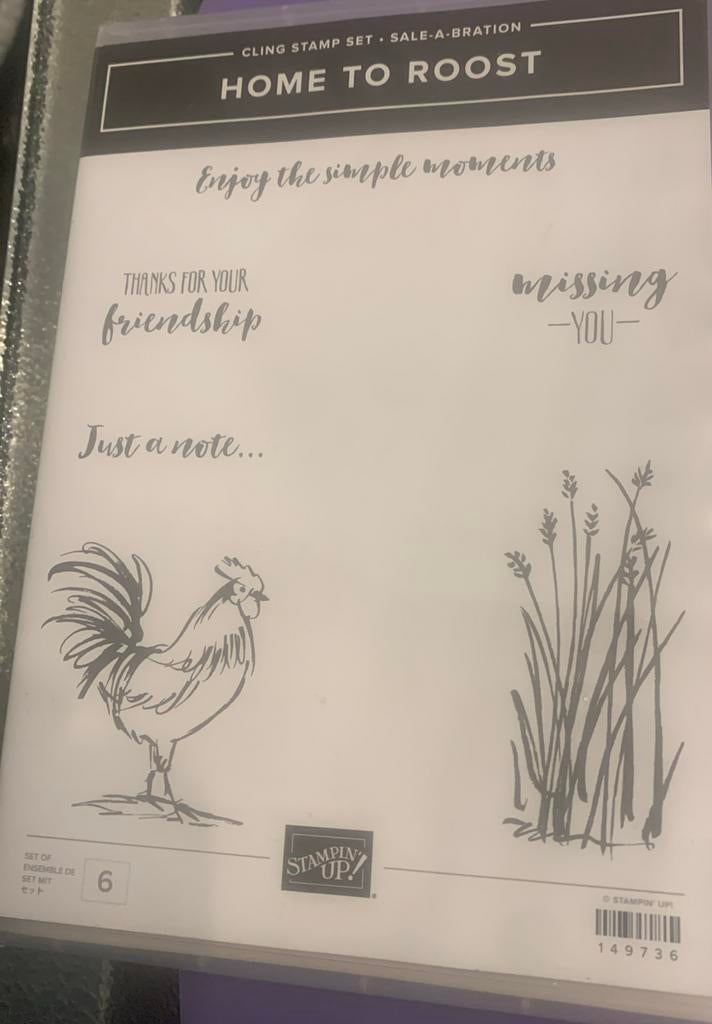 CLING STAMP SET • SALE-A-BRATION
HOME TO ROOST
Enjoy the simple moments
THANKS FOR YOUR
friendship
missing
—YOU—
Just a note...
SET OF
ENSEMBLE DE
SET MIT
セット
6
STAMPIN'
UP!®
© STAMPIN' UP!
149736